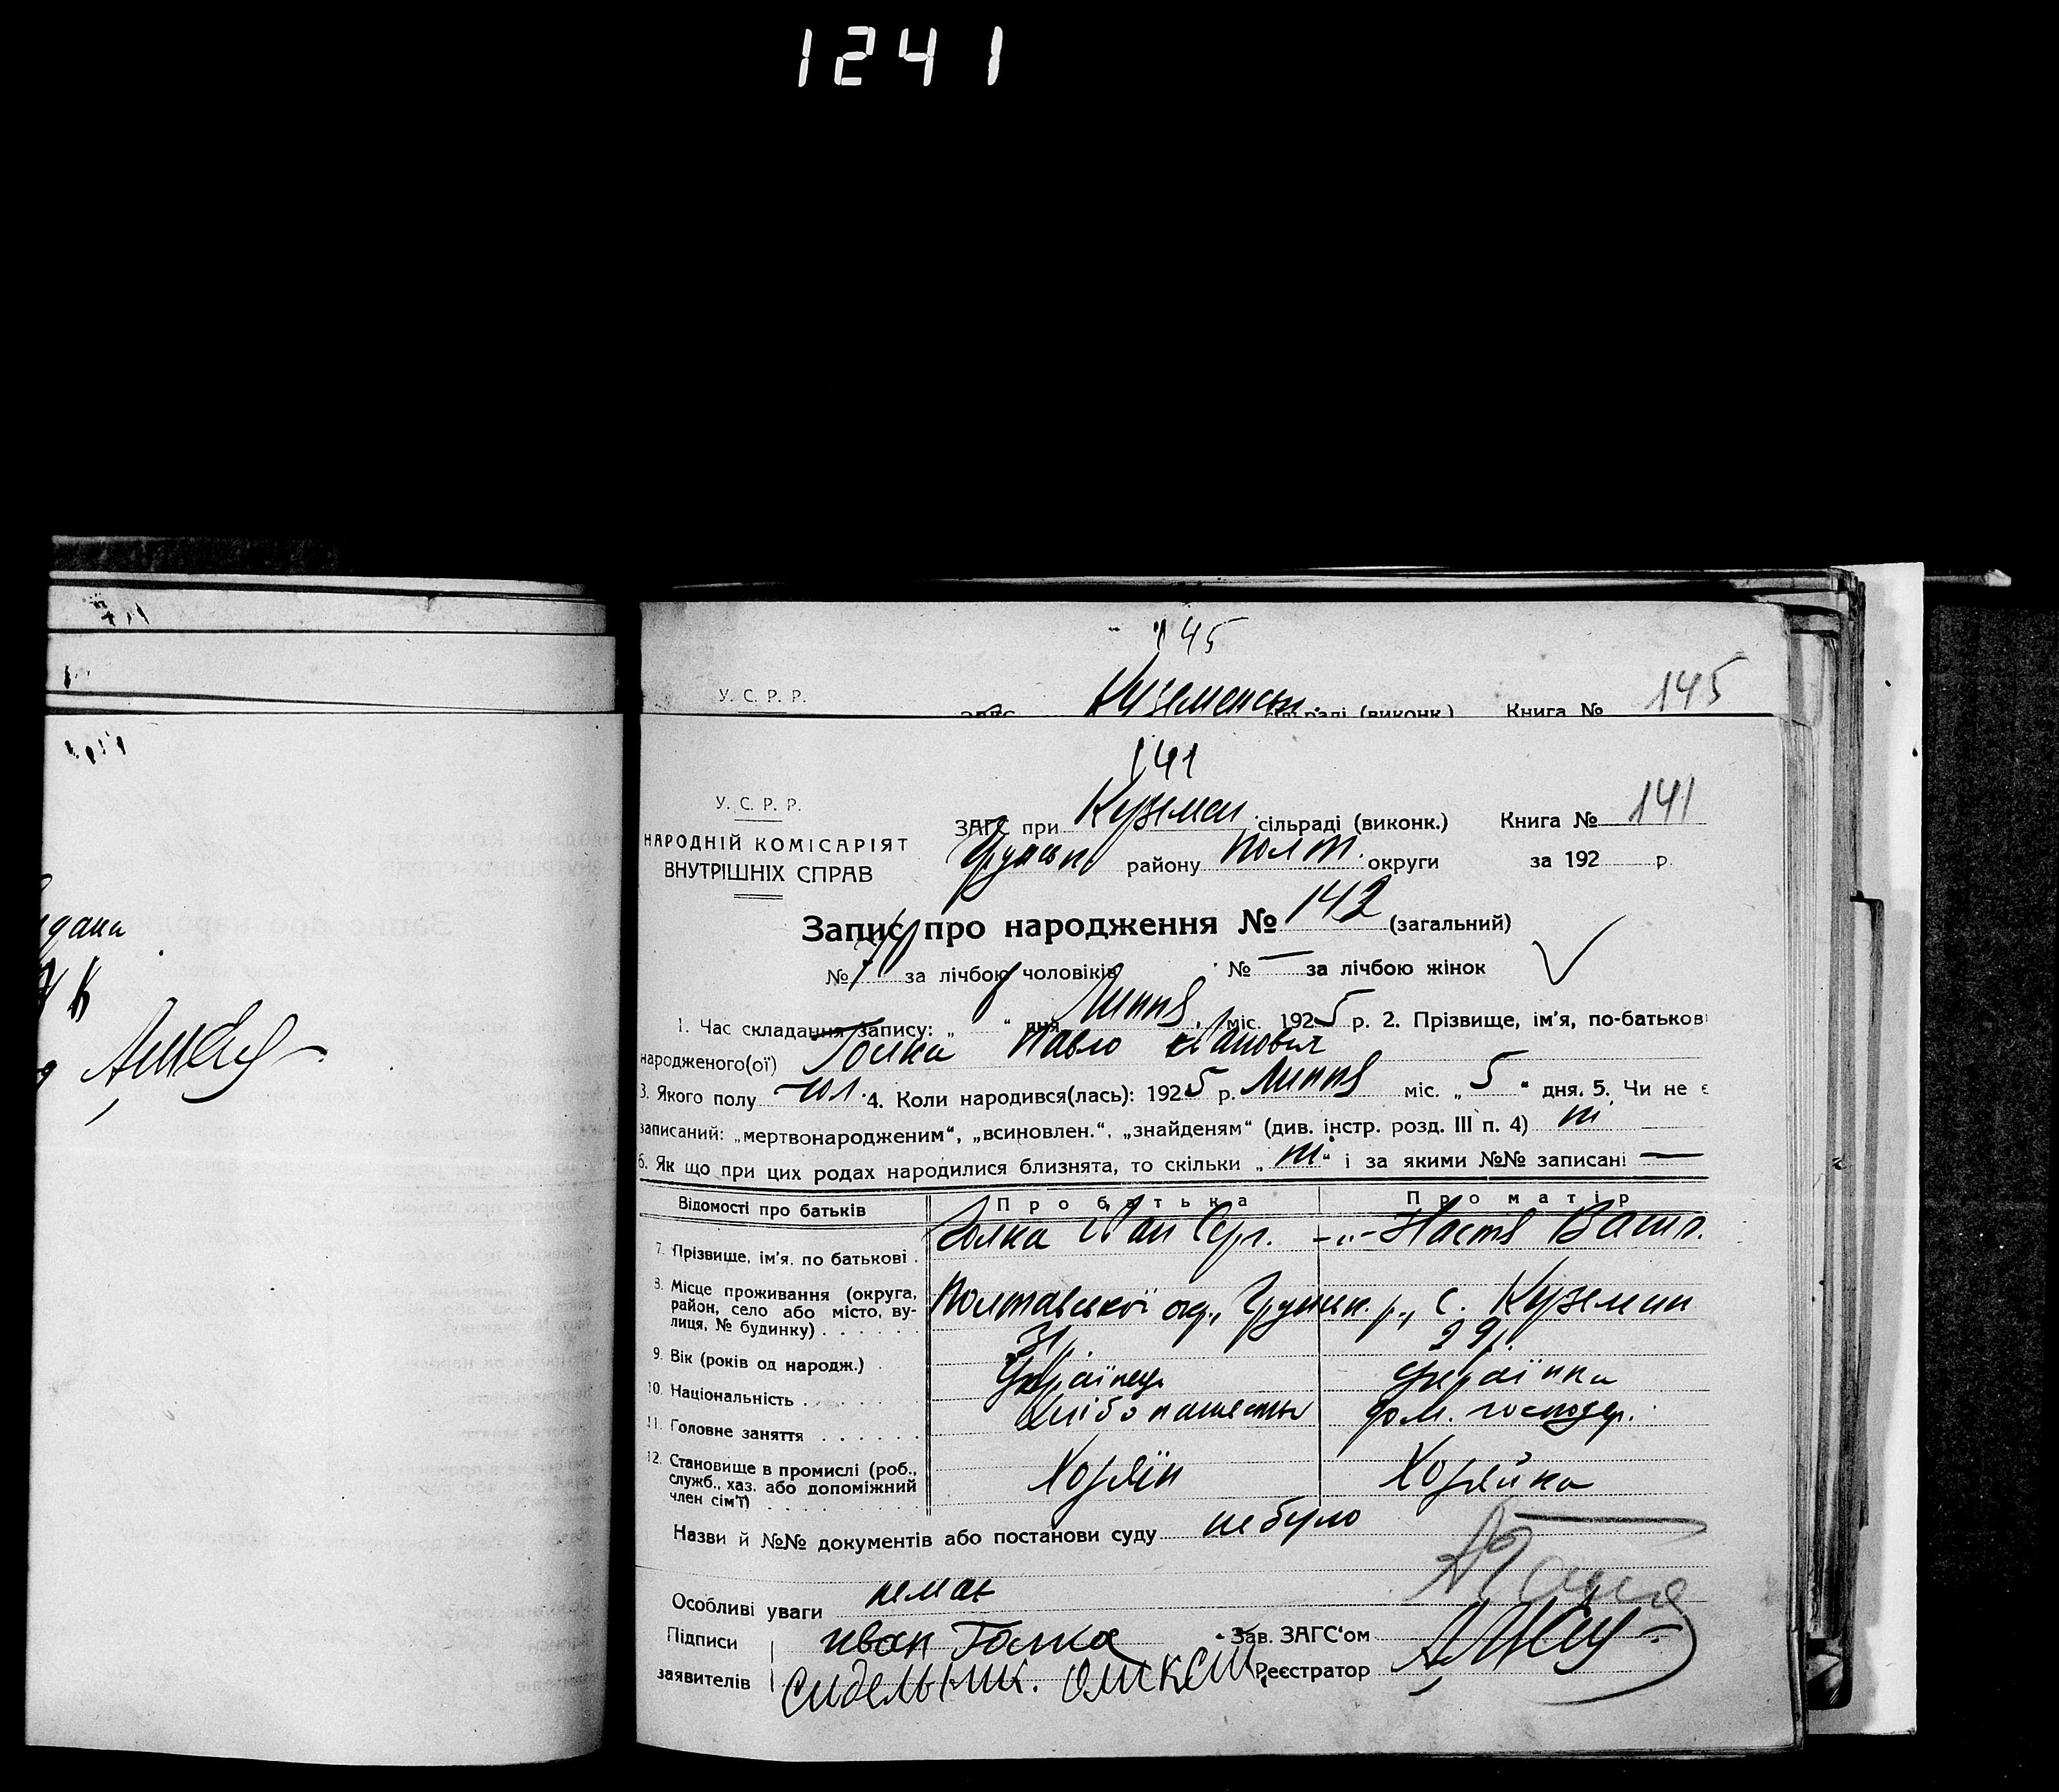 1241
145
У. С. Р. Р.
сільраді (виконк.) Книга № 145
141
У. С. Р. Р.
НАРОДНІЙ КОМІСАРІЯТ
ВНУТРІШНІХ СПРАВ
ЗАГС при Куземен сільраді (виконк.) Книга № 141
району Полт. округи за 192 р.
Запис про народження № 142 (загальний)
№ за лічбою чоловіків № — за лічбою жінок
1. Час складання запису: „ “ дня Липня міс. 1925 р. 2. Прізвище, ім'я, по-батькові
народженого(ої) Голка Павло Іванович
3. Якого полу чол. 4. Коли народився(лась): 1925 р. Липня міс. „ 5 “ дня. 5. Чи не є
записаний: „мертвонародженим“, „всиновлен.“, „знайденям“ (див. інстр. розд. III п. 4) ні
6. Як що при цих родах народилися близнята, то скільки „ ні “ і за якими №№ записані —
Відомості про батьків Про батька Про матір
7. Прізвище, ім'я. по батькові . Голка Іван Сер. -„- Настя Васил.
8. Місце проживання (округа, район, село або місто, вулиця, № будинку) . . . . . . Полтавської окр., Грунськ. р., с. Куземин
9. Вік (років од народж.) 31 29
10. Національність . . . . . . . Українець Українка
11. Головне заняття . . . . . . Хлібопашество дом. господар.
12. Становище в промислі (роб., служб., хаз. або допоміжний член сім'ї) Хозяїн Хозяйка
Назви й №№ документів або постанови суду не було
Особливі уваги немає
Підписи иван Голка Зав. ЗАГС‘ом
заявителів Реєстратор